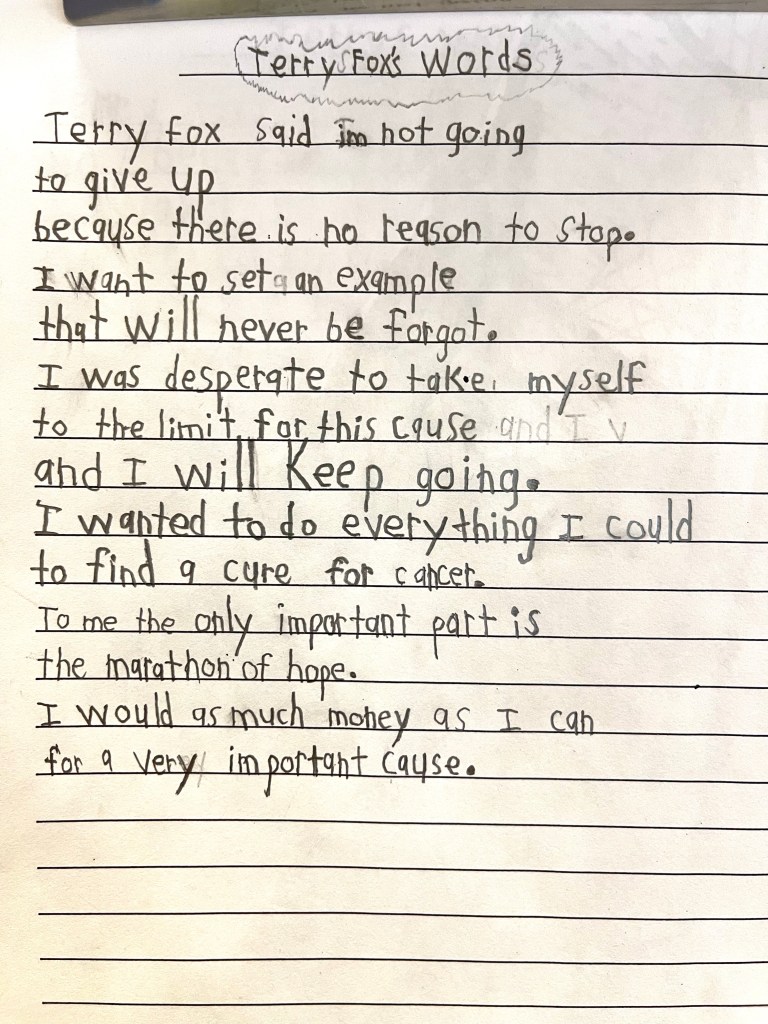 Terry Fox's Words
Terry fox said im not going
to give up
because there is no reason to stop.
I want to set an example
that will never be forgot.
I was desperate to take myself
to the limit for this cause and I v
and I will Keep going.
I wanted to do everything I could
to find a cure for cancer.
To me the only important part is
the marathon of hope.
I would as much money as I can
for a very important cause.